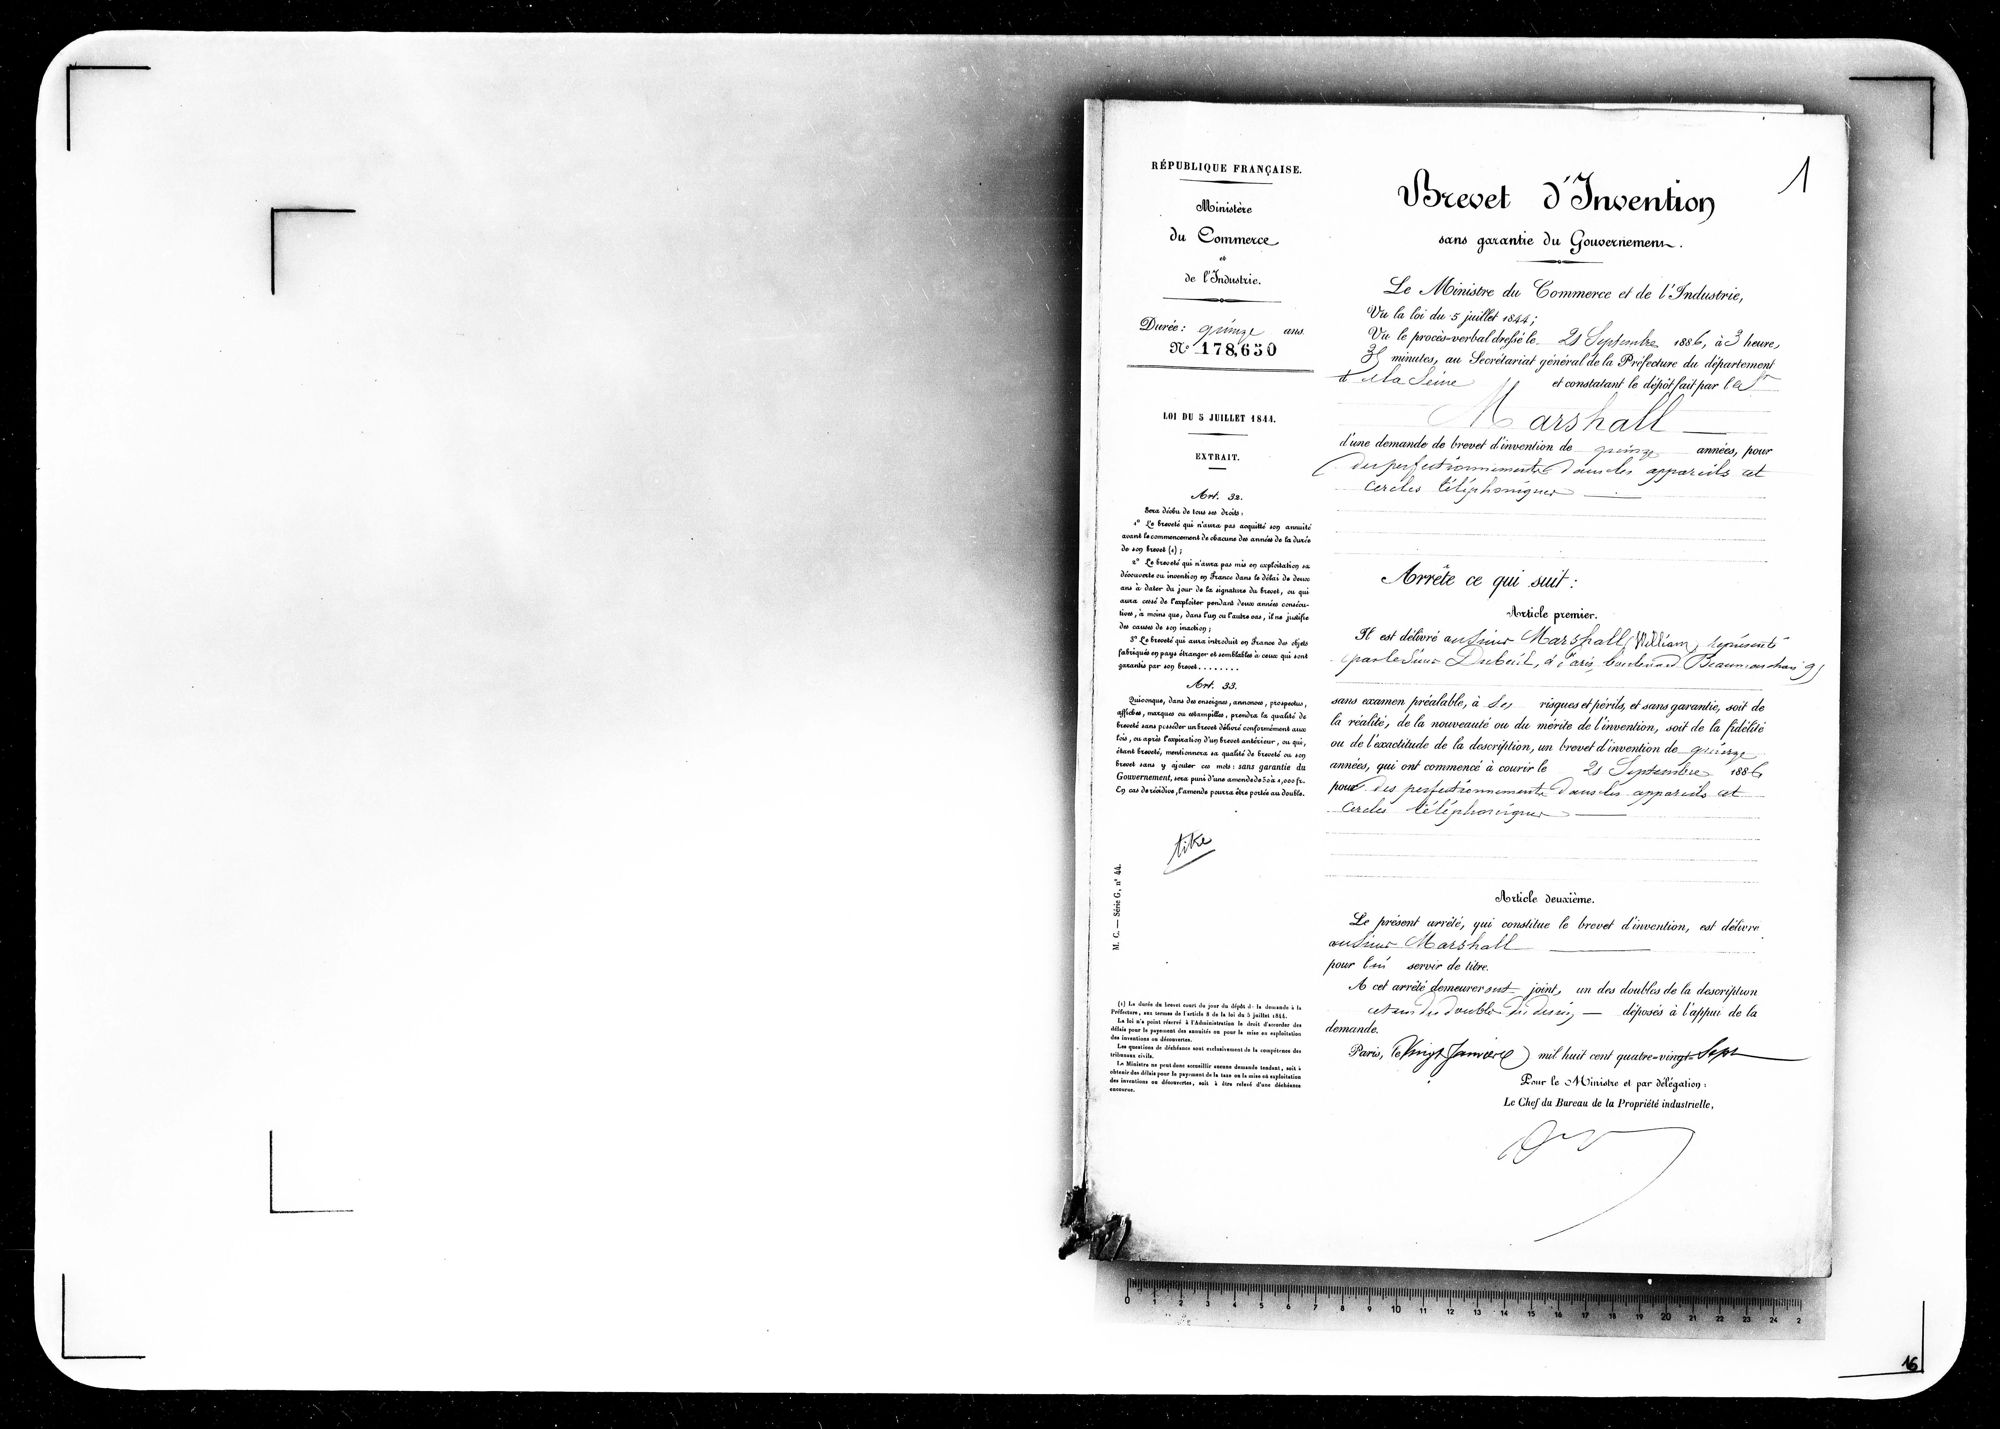 RÉPUBLIQUE FRANÇAISE.
Ministère
du Commerce
et
de l'Industrie.
Durée: quinze ans
N° 178,650
LOI DU 5 JUILLET 1844.
EXTRAIT.
Art. 32.
Sera déchu de tous ses droits:
1° Le breveté qui n'aura pas acquitté son annuité
avant le commencement de chacune des années de la durée
de son brevet (1);
2° Le breveté qui n'aura pas mis en exploitation sa
découverte ou invention en France dans le délai de deux
ans à dater du jour de la signature du brevet, ou qui
aura cessé de l'exploiter pendant deux années consécu-
tives, à moins que, dans l'un ou l'autre cas, il ne justifie
des causes de son inaction;
3° Le breveté qui aura introduit en France des objets
fabriqués en pays étranger et semblables à ceux qui sont
garantis par son brevet........
Art. 33.
Quiconque, dans des enseignes, annonces, prospectus,
affiches, marques ou estampilles, prendra la qualité de
breveté sans posséder un brevet délivré conformément aux
lois, ou après l'expiration d'un brevet antérieur, ou qui,
étant breveté, mentionnera sa qualité de breveté ou son
brevet sans y ajouter ces mots: sans garantie du
Gouvernement, sera puni d'une amende de 50 à 1,000 fr.
En cas de récidive, l'amende pourra être portée au double.
M. C. — Série G, n° 44.
(1) La durée du brevet court du jour du dépôt de la demande à la
Préfecture, aux termes de l'article 8 de la loi du 5 juillet 1844.
La loi n'a point réservé à l'Administration le droit d'accorder des
délais pour le payement des annuités ou pour la mise en exploitation
des inventions ou découvertes.
Les questions de déchéance sont exclusivement de la compétence des
tribunaux civils.
Le Ministre ne peut donc accueillir aucune demande tendant, soit à
obtenir des délais pour le payement de la taxe ou la mise en exploitation
des inventions ou découvertes, soit à être relevé d'une déchéance
encourue.
1
Brevet d'Invention
sans garantie du Gouvernement.
Le Ministre du Commerce et de l'Industrie,
Vu la loi du 5 juillet 1844;
Vu le procès-verbal dressé le 21 Septembre 1886, à 3 heure,
35 minutes, au Secrétariat général de la Préfecture du département
d e la Seine et constatant le dépôt fait par le Sr
Marshall
d'une demande de brevet d'invention de quinze années, pour
des perfectionnements dans les appareils et
cercles téléphoniques
Arrête ce qui suit:
Article premier.
Il est délivré au Sieur Marshall (William), représenté
par le Sieur Dubeuil, à Paris, boulevard Beaumarchais
sans examen préalable, à ses risques et périls, et sans garantie, soit de
la réalité, de la nouveauté ou du mérite de l'invention, soit de la fidélité
ou de l'exactitude de la description, un brevet d'invention de quinze
années, qui ont commencé à courir le 21 Septembre 1886
pour des perfectionnements dans les appareils et
cercles téléphoniques
Article deuxième.
Le présent arrêté, qui constitue le brevet d'invention, est délivré
au Sieur Marshall
pour lui servir de titre.
A cet arrêté demeureront joint, un des doubles de la description
et un des doubles du dessin — déposés à l'appui de la
demande.
Paris, le Vingt Janvier mil huit cent quatre-vingt Sept
Pour le Ministre et par délégation:
Le Chef du Bureau de la Propriété industrielle,
0 1 2 3 4 5 6 7 8 9 10 11 12 13 14 15 16 17 18 19 20 21 22 23 24 2
16